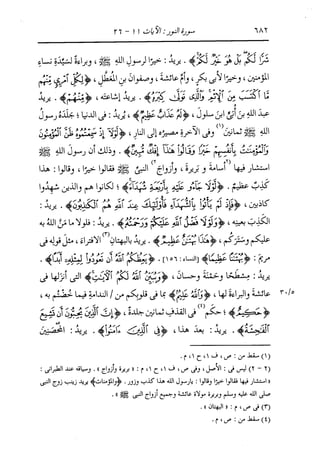 ٦٨٢ سورة النور : الآيات ١١ - ٢٦
شَرًّا لَكُم بَلْ هُوَ خَيْرٌ لَكُمْ﴾ . يريدُ : خيرًا لرسولِ اللهِ ﷺ ، وبراءةً لسيدةِ نساءِ
المؤمنين ، وخيرًا لأبي بكرٍ ، وأمِّ عائشةَ ، وصفوانَ بنِ المعطلِ ، ﴿لِكُلِّ امْرِئٍ مِنْهُم
مَا اكْتَسَبَ مِنَ الْإِثْمِ وَالَّذِي تَوَلَّى كِبْرَهُ﴾ . يريدُ إشاعتَه ، ﴿مِنْهُمْ﴾ . يريدُ
عبدَ اللهِ بنَ أُبيٍّ ابنَ سلولَ ، ﴿لَهُ عَذَابٌ عَظِيمٌ﴾ ، يُريدُ : في الدنيا ؛ جلَده رسولُ
اللهِ ﷺ ثمانينَ (١) وفي الآخرةِ مصيرُه إلى النارِ ، ﴿لَوْلَا إِذْ سَمِعْتُمُوهُ ظَنَّ الْمُؤْمِنُونَ
وَالْمُؤْمِنَاتُ بِأَنفُسِهِمْ خَيْرًا وَقَالُوا هَذَا إِفْكٌ مُبِينٌ﴾ . وذلك أن رسولَ اللهِ ﷺ
استشار فيها (٢) أسامةَ و بَرِيرَةَ ، وأزواجَ (٢) النبيِّ ﷺ فقالوا خيرًا ، وقالوا : هذا
كذبٌ عظيمٌ . ﴿لَوْلَا جَاءُو عَلَيْهِ بِأَرْبَعَةِ شُهَدَاءَ﴾ ؛ لكانوا هم والذين شهِدوا
كاذبين ، ﴿فَإِذْ لَمْ يَأْتُوا بِالشُّهَدَاءِ فَأُولَئِكَ عِندَ اللَّهِ هُمُ الْكَاذِبُونَ﴾ . يريدُ :
الكذبَ بعينِه ، ﴿وَلَوْلَا فَضْلُ اللَّهِ عَلَيْكُمْ وَرَحْمَتُهُ﴾ . يريدُ : فلولا ما منَّ اللهُ به
عليكم وسَتَركم ، ﴿هَذَا بُهْتَانٌ عَظِيمٌ﴾ . يريدُ بالبهتانِ (٣) الافتراءَ ، مثلَ قولِه في
مريمَ : ﴿بُهْتَانًا عَظِيمًا﴾ [النساء : ١٥٦] . ﴿يَعِظُكُمُ اللَّهُ أَن تَعُودُوا لِمِثْلِهِ أَبَدًا﴾ .
يريدُ : مِسْطحًا وحَمْنةَ وحسانَ ، ﴿وَيُبَيِّنُ اللَّهُ لَكُمُ الْآيَاتِ﴾ التي أنزلها في
٣٠/٥ عائشةَ والبراءةَ لها ، ﴿وَاللَّهُ عَلِيمٌ﴾ بما في قلوبِكم من / الندامةِ فيما خُضْتُم به ،
﴿حَكِيمٌ﴾ ؛ حكَم (٤) في القذفِ ثمانين جلدةً ، ﴿إِنَّ الَّذِينَ يُحِبُّونَ أَن تَشِيعَ
الْفَاحِشَةُ﴾ . يريدُ : بعدَ هذا ، ﴿فِي الَّذِينَ آمَنُوا﴾ . يريدُ : المحصَنين
(١) سقط من : ص ، ف ١ ، ح ١ ، م .
(٢ - ٢) ليس في : الأصل ، وفي ص ، ف ١ ، ح ١ ، م : « بريرة وأزواج » . وسياقه عند الطبراني :
« استشار فيها فقالوا خيرًا وقالوا : يارسول الله هذا كذب وزور . ﴿والمؤمنات﴾ يريد زينب زوج النبي
صلى الله عليه وسلم وبريرة مولاة عائشة وجميع أزواج النبي ﷺ » .
(٣) في ص ، م : « البهتان » .
(٤) سقط من : ص ، م .